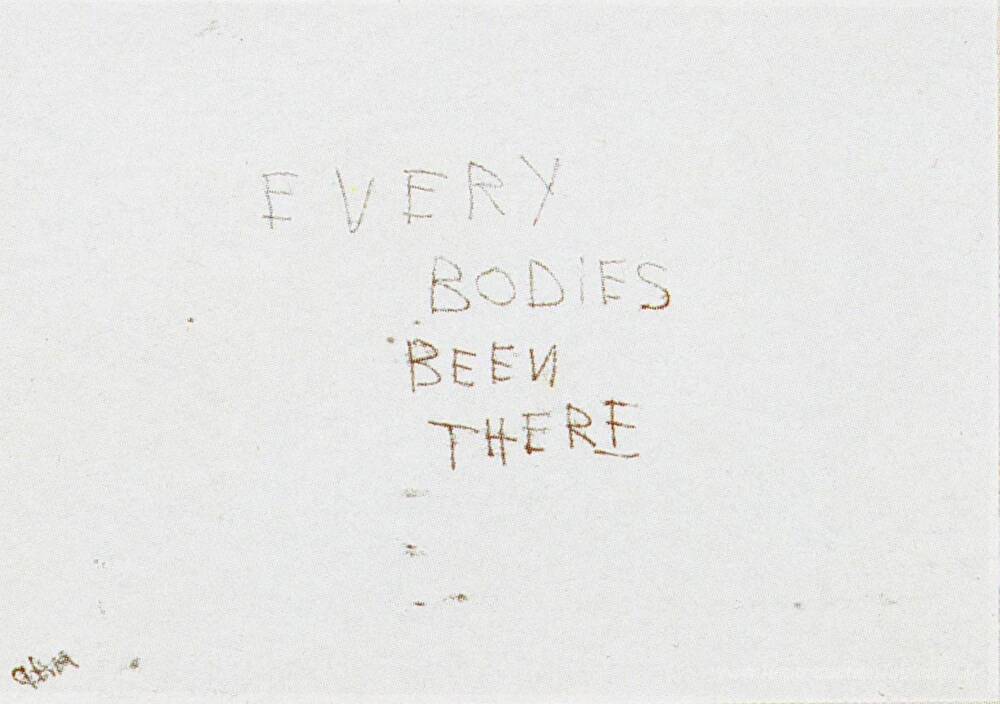 EVERY
BODiES
BEEN
THERE